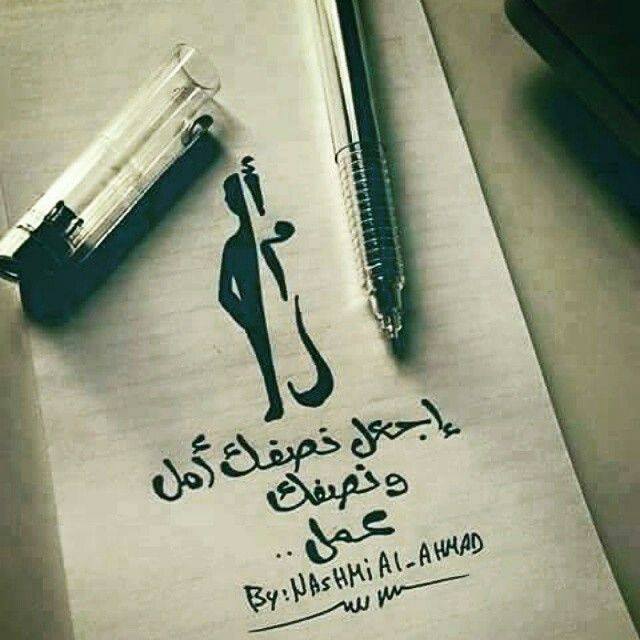 أمل
إجعل نصفك أمل
ونصفك
عمل ..
By: NAsHMi Al-AHMAD